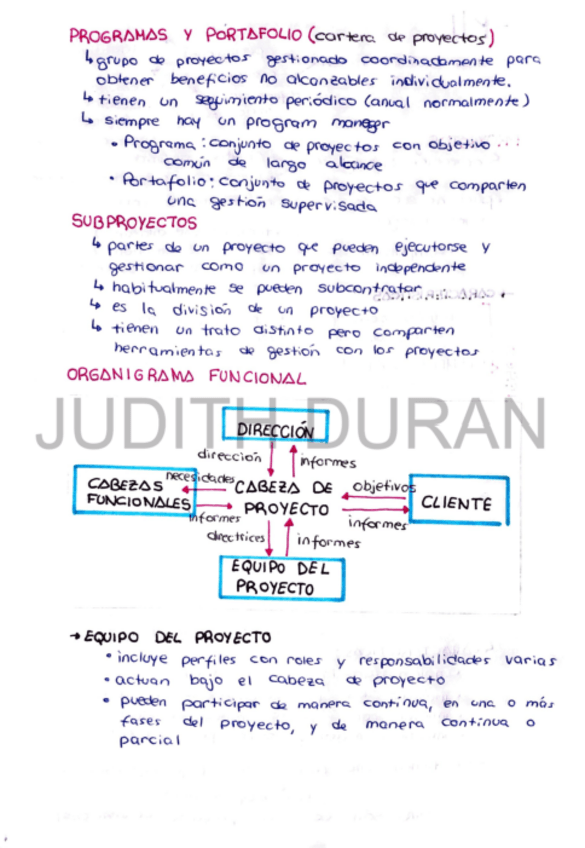 PROGRAMAS Y PORTAFOLIO (cartera de proyectos)
↳ grupo de proyectos gestionado coordinadamente para
obtener beneficios no alcanzables individualmente.
↳ tienen un seguimiento periódico (anual normalmente)
↳ siempre hay un program manager
• Programa: conjunto de proyectos con objetivo
común de largo alcance
• Portafolio: conjunto de proyectos que comparten
una gestión supervisada
SUBPROYECTOS
↳ partes de un proyecto que pueden ejecutarse y
gestionar como un proyecto independente
↳ habitualmente se pueden subcontratar
↳ es la división de un proyecto
↳ tienen un trato distinto pero comparten
herramientas de gestión con los proyectos
ORGANIGRAMA FUNCIONAL
JUDITH DURAN
DIRECCIÓN
dirección informes
CABEZAS FUNCIONALES
necesidades
informes
CABEZA DE
PROYECTO
objetivos
informes
CLIENTE
directrices informes
EQUIPO DEL
PROYECTO
→ EQUIPO DEL PROYECTO
• incluye perfiles con roles y responsabilidades varias
• actuan bajo el cabeza de proyecto
• pueden participar de manera continua, en una o más
fases del proyecto, y de manera continua o
parcial